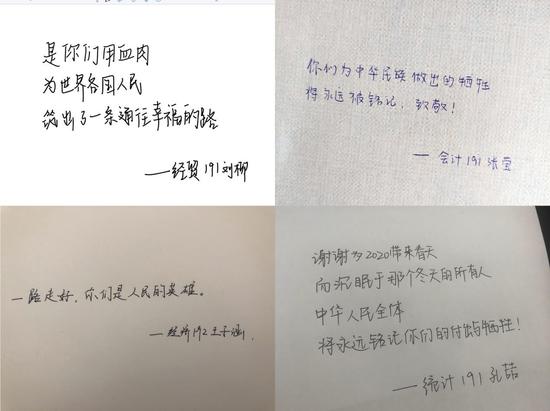 是你们用血肉
为世界各国人民
筑出了一条通往幸福的路
——经贸191刘柳
你们为中华民族做出的牺牲
将永远被铭记，致敬！
——会计191张莹
一路走好，你们是人民的英雄。
——经济192王子涵
谢谢为2020带来春天
而沉眠于那个冬天的所有人
中华人民全体
将永远铭记你们的付出与牺牲！
——统计191孔喆